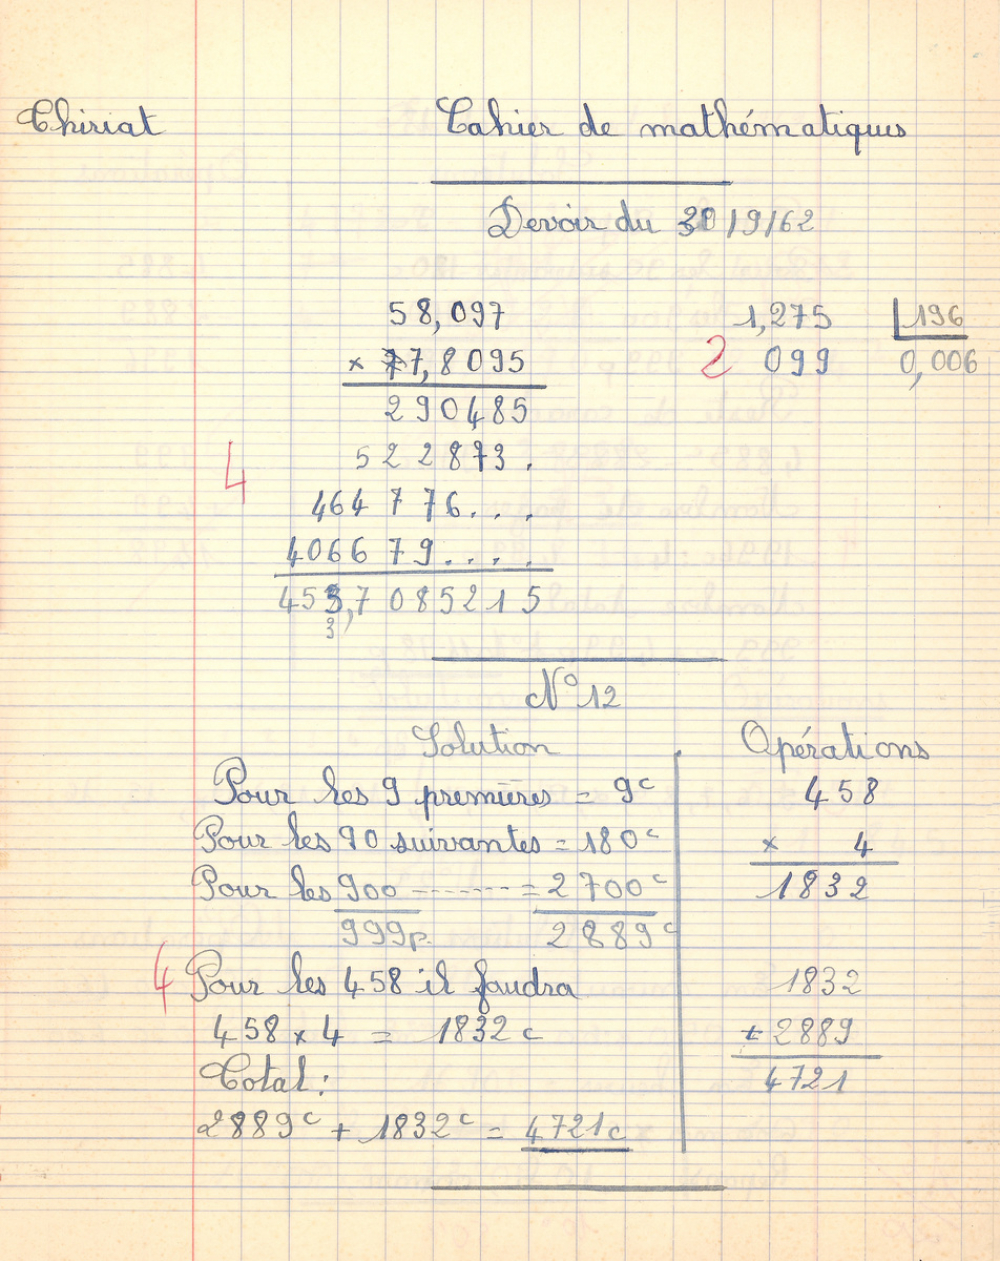 Thiriat
Cahier de mathématiques
Devoir du 30/9/62
58,097
× 77,8095
290485
522873.
464776...
406679....
453,7085215
3
4
1,275 196
2 099 0,006
N° 12
Solution
Pour les 9 premières = 9c
Pour les 90 suivantes = 180c
Pour les 900 ------- = 2700c
999p. 2889c
4 Pour les 458 il faudra
458 × 4 = 1832c
Total:
2889c + 1832c = 4721c
Opérations
458
× 4
1832
1832
+ 2889
4721